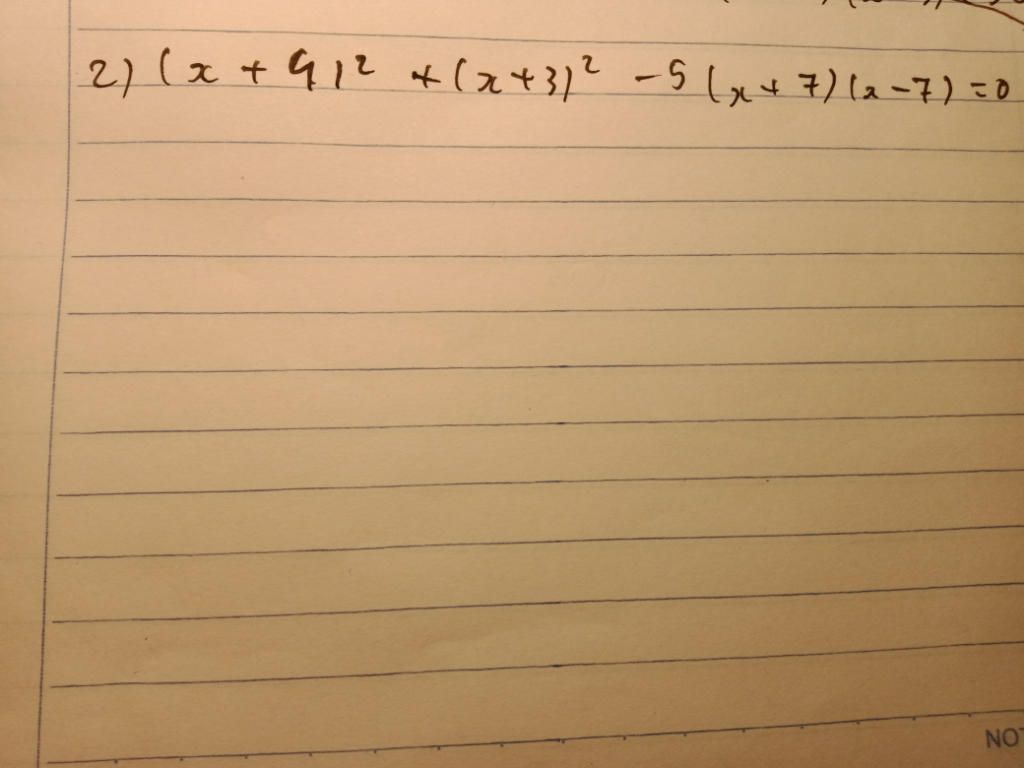 2) (x + 9)² + (x+3)² - 5 (x + 7) (x - 7) = 0
NOT